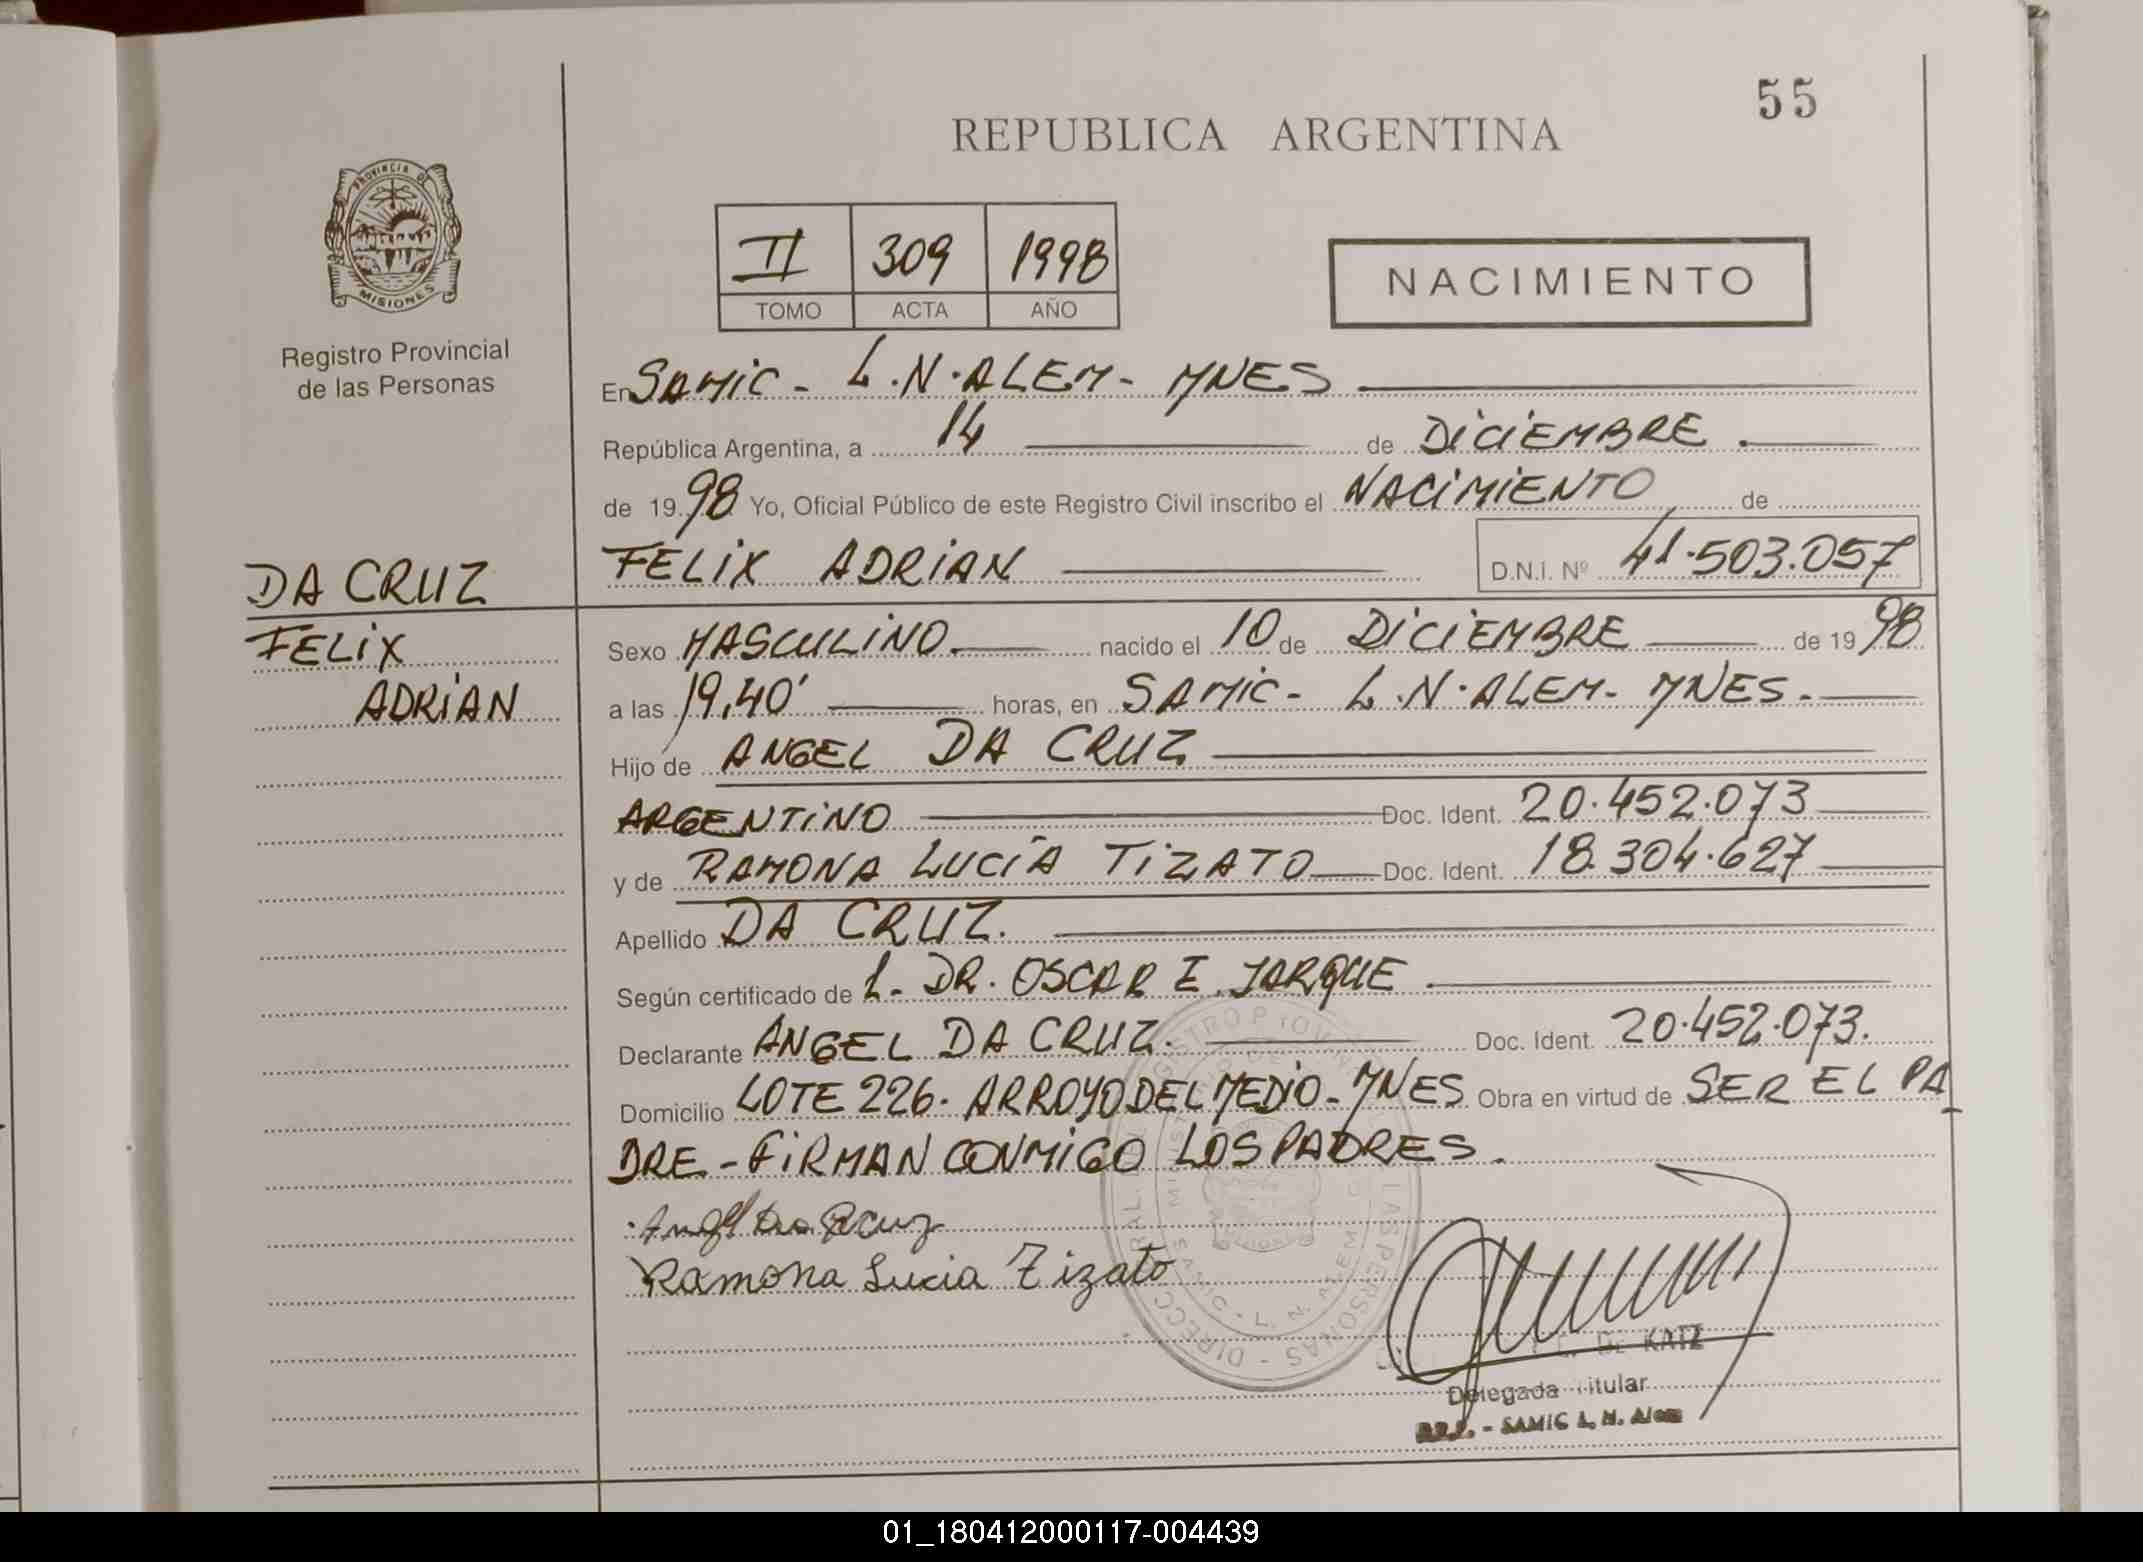 55
REPUBLICA ARGENTINA
PROVINCIA DE
MISIONES
Registro Provincial
de las Personas
II 309 1998
TOMO ACTA AÑO
NACIMIENTO
En SAMIC - L.N.ALEM - MNES
República Argentina, a 14 de DICIEMBRE.
de 1998 Yo, Oficial Público de este Registro Civil inscribo el NACIMIENTO de
FELIX ADRIAN D.N.I. Nº 41.503.057
DA CRUZ
FELIX
ADRIAN
Sexo MASCULINO nacido el 10 de DICIEMBRE de 1998
a las 19,40' horas, en SAMIC - L.N.ALEM - MNES.
Hijo de ANGEL DA CRUZ
ARGENTINO Doc. Ident. 20.452.073
y de RAMONA LUCÍA TIZATO Doc. Ident. 18.304.627
Apellido DA CRUZ.
Según certificado de L. DR. OSCAR E. JARQUE
Declarante ANGEL DA CRUZ. Doc. Ident. 20.452.073.
Domicilio LOTE 226. ARROYO DEL MEDIO - MNES Obra en virtud de SER EL PA
DRE - FIRMAN CONMIGO LOS PADRES.
Angel Da Cruz
Ramona Lucia Tizato
KATZ
Delegada Titular
SAMIC L. N. Alem
01_180412000117-004439